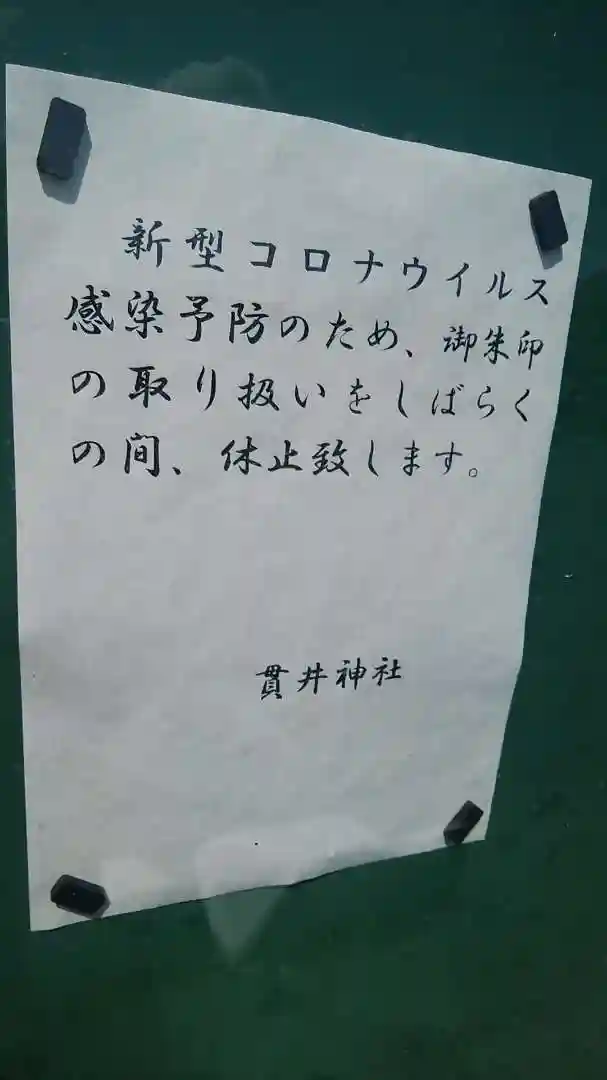 新型コロナウイルス
感染予防のため、御朱印
の取り扱いをしばらく
の間、休止致します。
貫井神社